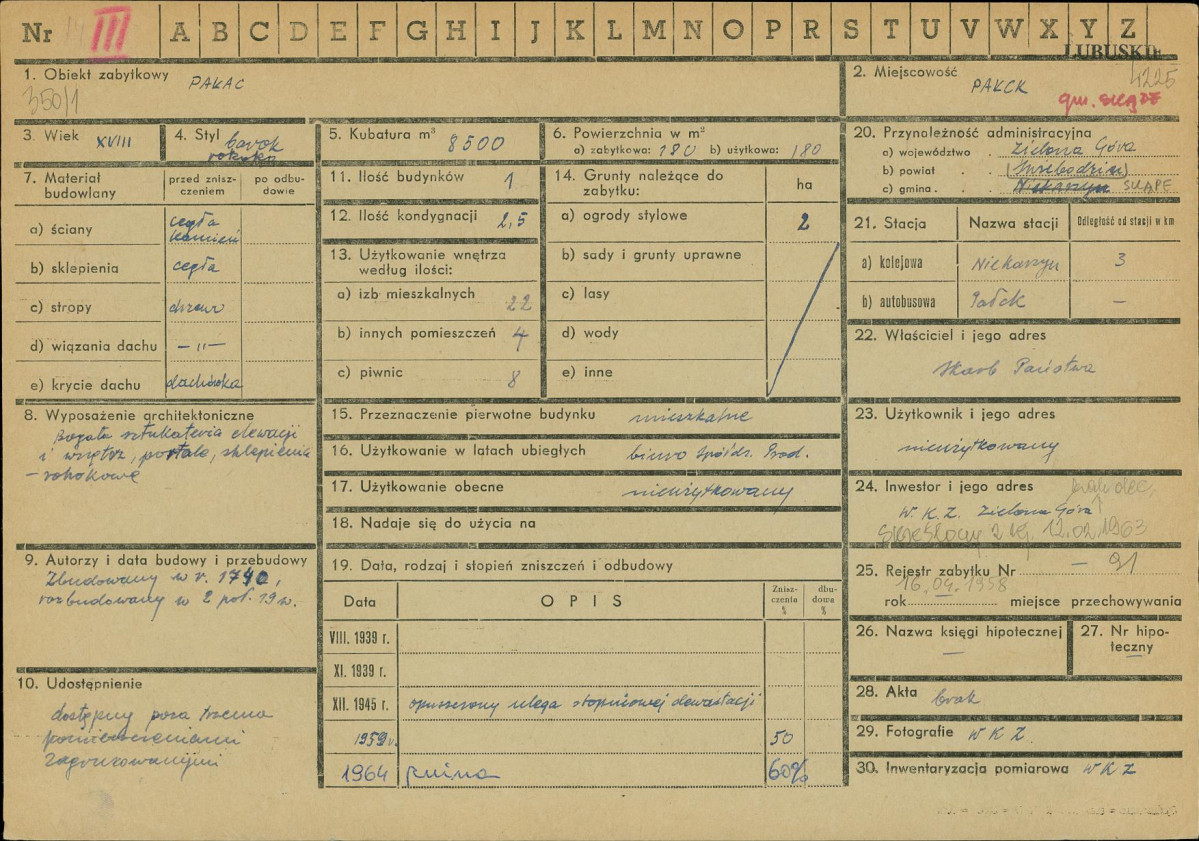 Nr III A B C D E F G H I J K L M N O P R S T U V W X Y Z
LUBUSKIE
1. Obiekt zabytkowy PAŁAC
350/1
2. Miejscowość PAŁCK
4225
gm. SKĄPE
3. Wiek XVIII
4. Styl barok
rokoko
5. Kubatura m³ 8500
6. Powierzchnia w m²
a) zabytkowa: 180 b) użytkowa: 180
7. Materiał budowlany
przed zniszczeniem
po odbudowie
a) ściany cegła kamień
b) sklepienia cegła
c) stropy drzewo
d) wiązania dachu — " —
e) krycie dachu dachówka
8. Wyposażenie architektoniczne
Bogata sztukateria elewacji
i wnętrz, portale, sklepienia
– rokokowe
9. Autorzy i data budowy i przebudowy
Zbudowany w r. 1740,
rozbudowany w 2 poł. 19 w.
10. Udostępnienie
dostępny poza trzema
pomieszczeniami
zagruzowanymi
11. Ilość budynków 1
12. Ilość kondygnacji 2,5
13. Użytkowanie wnętrza
według ilości:
a) izb mieszkalnych 22
b) innych pomieszczeń 4
c) piwnic 8
14. Grunty należące do
zabytku:
ha
a) ogrody stylowe 2
b) sady i grunty uprawne
c) lasy
d) wody
e) inne
15. Przeznaczenie pierwotne budynku mieszkalne
16. Użytkowanie w latach ubiegłych biuro Spółdz. Prod.
17. Użytkowanie obecne nieużytkowany
18. Nadaje się do użycia na
19. Data, rodzaj i stopień zniszczeń i odbudowy
Data OPIS Zniszczenia % dbudowa %
VIII. 1939 r.
XI. 1939 r.
XII. 1945 r. opuszczony ulega stopniowej dewastacji
1959 r. 50
1964 ruina 60%
20. Przynależność administracyjna
a) województwo Zielona Góra
b) powiat (Świebodzin)
c) gmina Niekarzyn SKĄPE
21. Stacja Nazwa stacji Odległość od stacji w km
a) kolejowa Niekarzyn 3
b) autobusowa Pałck —
22. Właściciel i jego adres
Skarb Państwa
23. Użytkownik i jego adres
nieużytkowany
24. Inwestor i jego adres
W. K. Z. Zielona Góra
Skreślony z rej. 12.02.1963
25. Rejestr zabytku Nr — 91
16.04.1958
rok miejsce przechowywania
26. Nazwa księgi hipotecznej
—
27. Nr hipoteczny
—
28. Akta brak
29. Fotografie W K Z
30. Inwentaryzacja pomiarowa W K Z